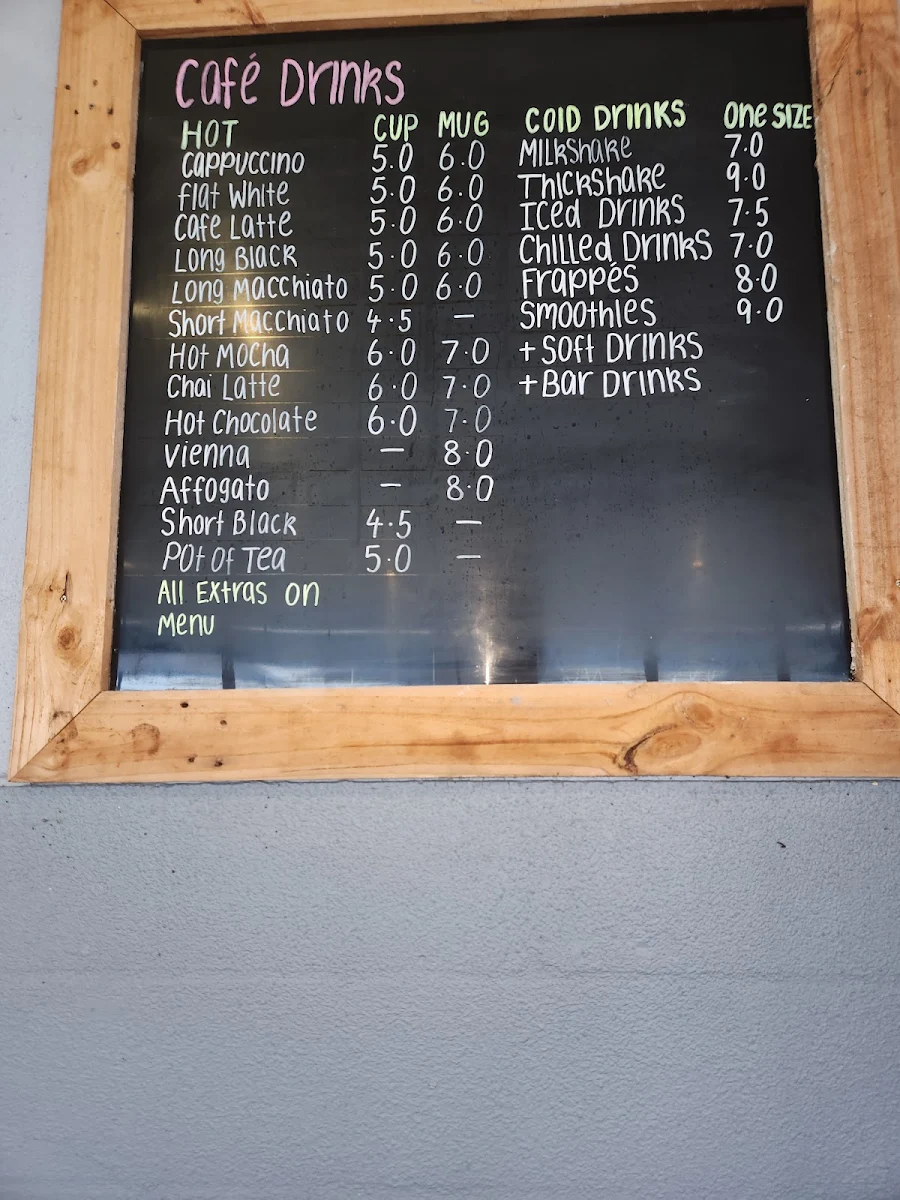 Café Drinks
HOT CUP MUG
Cappuccino 5.0 6.0
Flat White 5.0 6.0
Cafe Latte 5.0 6.0
Long Black 5.0 6.0
Long Macchiato 5.0 6.0
Short Macchiato 4.5 –
Hot Mocha 6.0 7.0
Chai Latte 6.0 7.0
Hot Chocolate 6.0 7.0
Vienna – 8.0
Affogato – 8.0
Short Black 4.5 –
Pot of Tea 5.0 –
All Extras on
Menu
Cold Drinks One Size
Milkshake 7.0
Thickshake 9.0
Iced Drinks 7.5
Chilled Drinks 7.0
Frappés 8.0
Smoothies 9.0
+ Soft Drinks
+ Bar Drinks